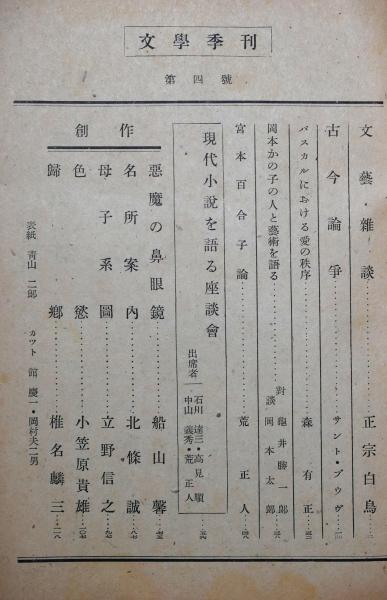 文學季刊
第四號
文藝・雜談……正宗白鳥
古今論爭……サント・ブウヴ
パスカルにおける愛の秩序……森有正
岡本かの子の人と藝術を語る……對談 龜井勝一郎 岡本太郎
宮本百合子論……荒正人
現代小說を語る座談會
出席者 石川達三・高見順 中山義秀・荒正人
創作
惡魔の鼻眼鏡……船山馨
名所案內……北條誠
母子系圖……立野信之
色慾……小笠原貴雄
歸鄕……椎名麟三
表紙 靑山二郎 カット 館慶一・岡村夫二男